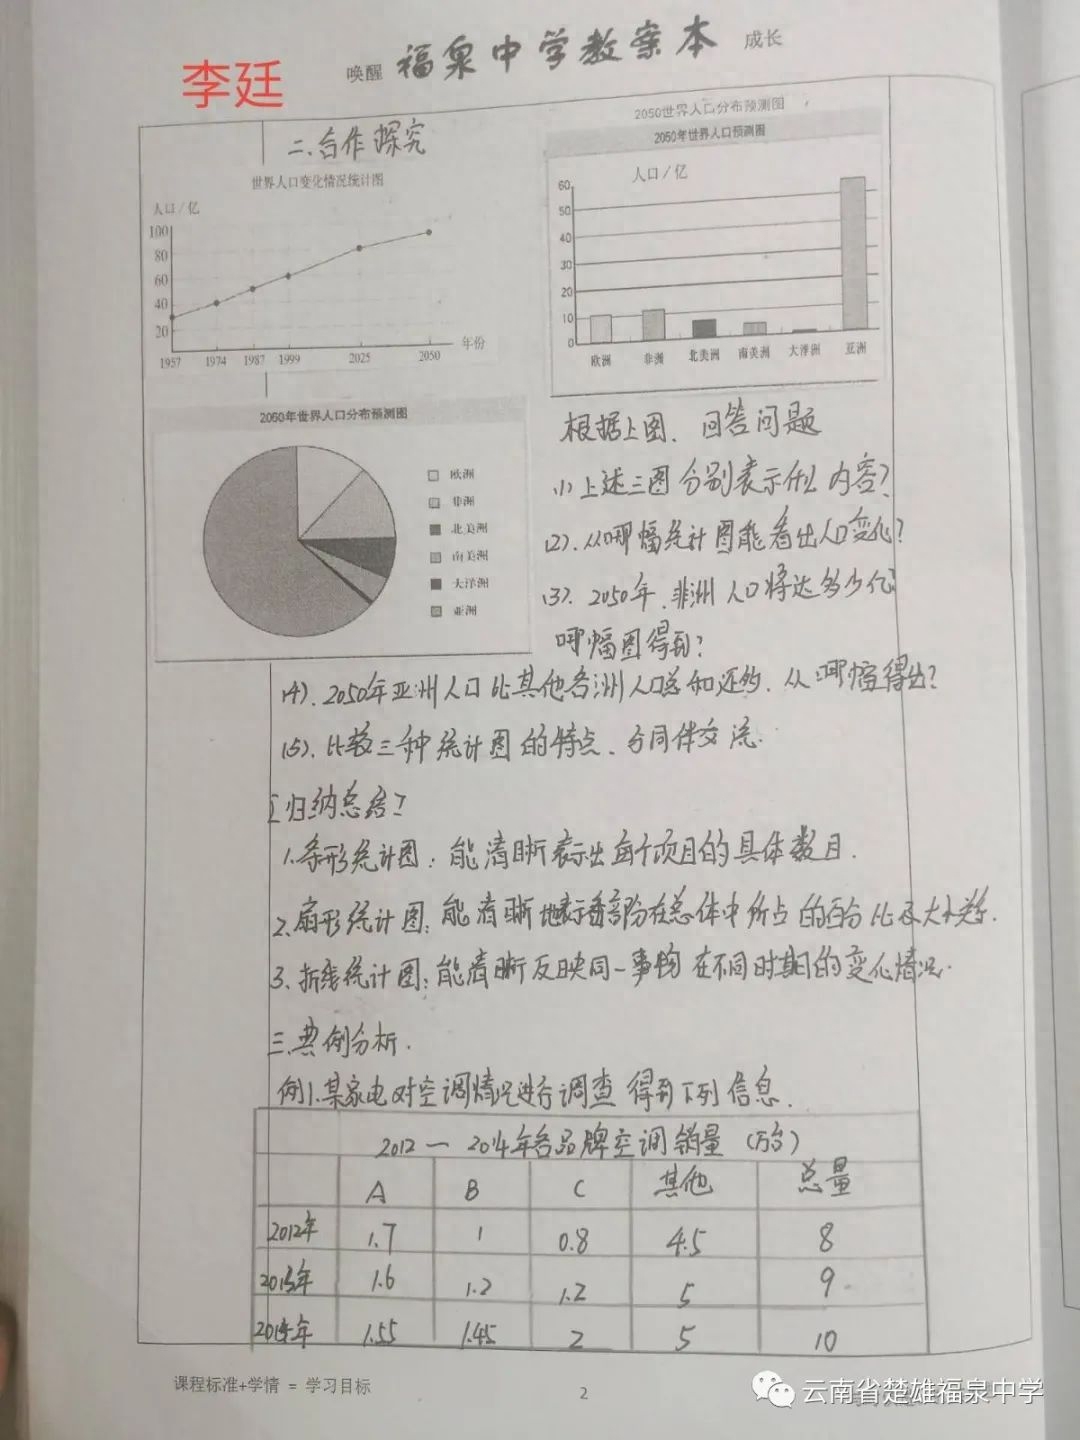 唤醒 福泉中学教案本 成长
李廷
二、合作探究
世界人口变化情况统计图
人口/亿
100
80
60
40
20
1957 1974 1987 1999 2025 2050 年份
2050世界人口分布预测图
2050年世界人口预测图
人口/亿
60
50
40
30
20
10
0
欧洲 非洲 北美洲 南美洲 大洋洲 亚洲
2050年世界人口分布预测图
欧洲
非洲
北美洲
南美洲
大洋洲
亚洲
根据上图、回答问题
(1)上述三图分别表示什么内容?
(2).从哪幅统计图能看出人口变化?
(3). 2050年.非洲人口将达多少亿?
哪幅图得到?
(4). 2050年亚洲人口比其他各洲人口总和还多.从哪幅得出?
(5).比较三种统计图的特点、与同伴交流.
[归纳总结]
1.条形统计图:能清晰表示出每个项目的具体数目.
2.扇形统计图:能清晰地表示各部分在总体中所占的百分比及大小关系.
3.折线统计图:能清晰反映同一事物在不同时期的变化情况.
三.典例分析.
例1.某家电对空调情况进行调查得到下列信息.
2012一2014年各品牌空调销量(万台)
A B C 其他 总量
2012年 1.7 1 0.8 4.5 8
2013年 1.6 1.2 1.2 5 9
2014年 1.55 1.45 2 5 10
课程标准+学情 = 学习目标
2
云南省楚雄福泉中学